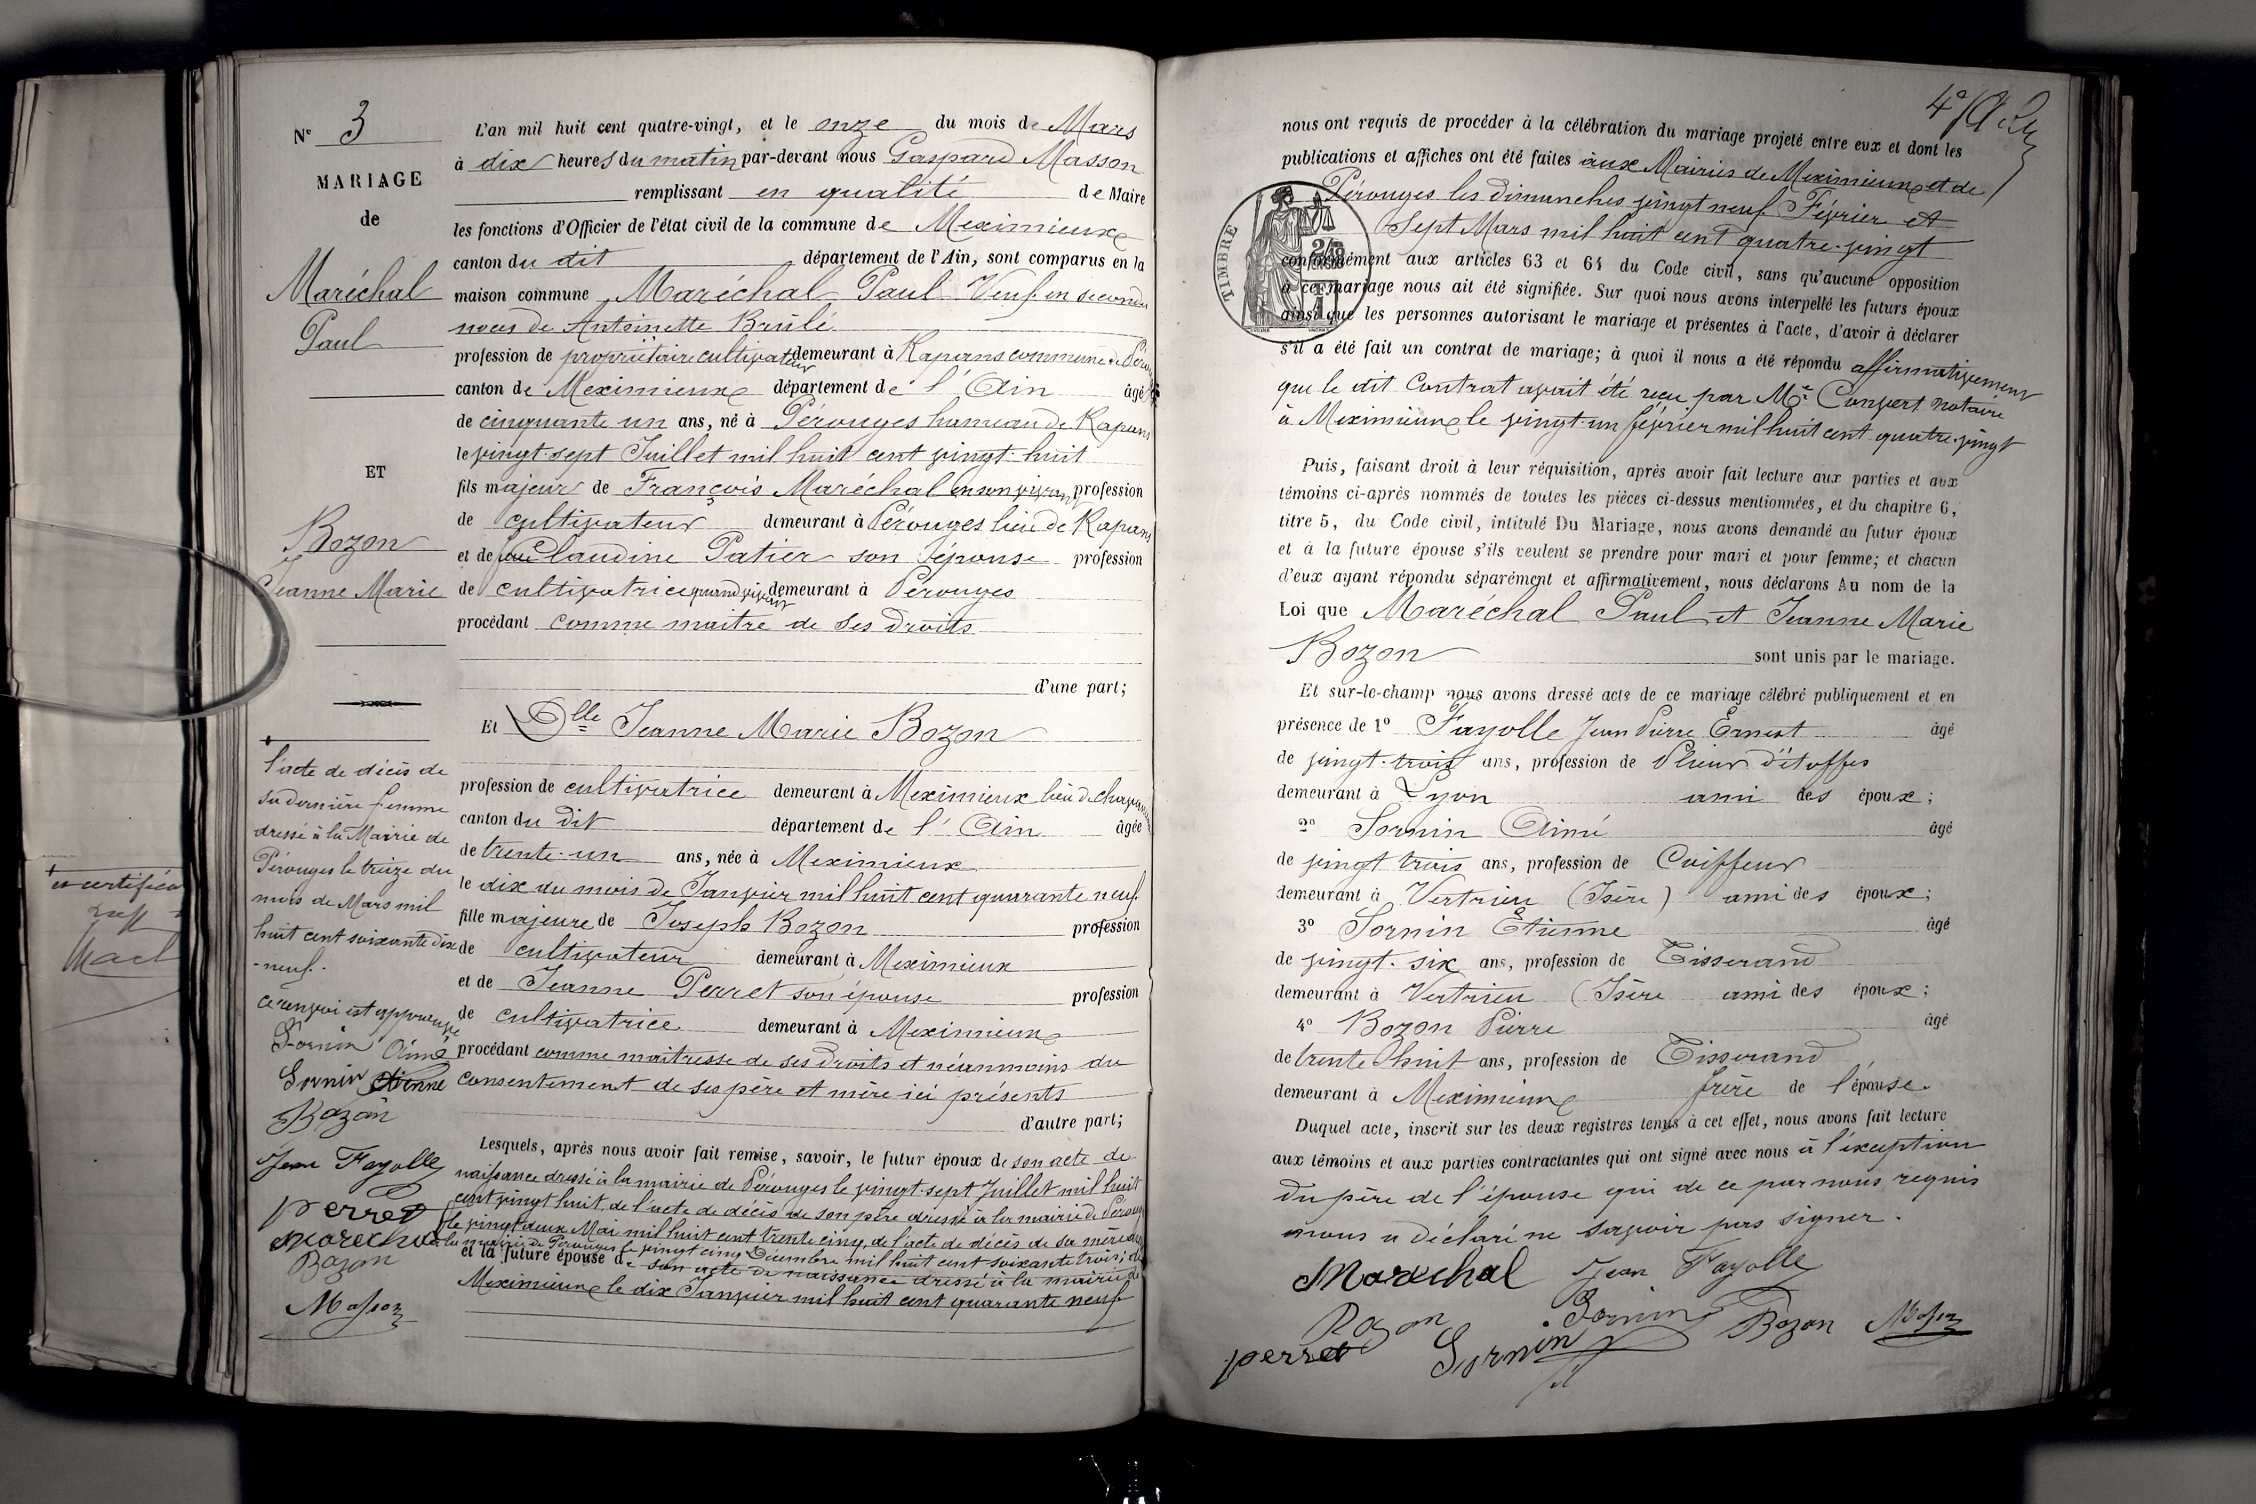 N° 3
MARIAGE
de
Maréchal
Paul
ET
Bozon
Jeanne Marie
l'acte de décès de
sa dernière femme
dressé à la Mairie de
Pérouges le treize du
mois de Mars mil
huit cent soixante dix
-neuf.
ce renvoi est approuvé
Sornin Aimé
Sornin Etienne
Bozon
Jean Fayolle
Perret
Marechal
Bozon
Masson
L'an mil huit cent quatre-vingt, et le onze du mois de Mars
à dix heures du matin par-devant nous Gaspard Masson
remplissant en qualité de Maire
les fonctions d'Officier de l'état civil de la commune de Meximieux
canton du dit département de l'Ain, sont comparus en la
maison commune Maréchal Paul Veuf en secondes
noces de Antoinette Brûlé
profession de propriétaire cultivateur demeurant à Rapans commune de
canton de Meximieux département de l'Ain âgé
de cinquante un ans, né à Pérouges hameau de Rapans
le vingt-sept Juillet mil huit cent vingt-huit
fils majeur de François Maréchal en son vivant profession
de cultivateur demeurant à Pérouges lieu de Rapans
et de Claudine Patier son épouse profession
de cultivatrice quand vivait demeurant à Pérouges
procédant comme maitre de ses droits
d'une part;
Et Dlle Jeanne Marie Bozon
profession de cultivatrice demeurant à Meximieux lieu de
canton du dit département de l'Ain âgée
de trente-un ans, née à Meximieux
le dix du mois de Janvier mil huit cent quarante neuf
fille majeure de Joseph Bozon profession
de cultivateur demeurant à Meximieux
et de Jeanne Perret son épouse profession
de cultivatrice demeurant à Meximieux
procédant comme maitresse de ses droits et néanmoins du
consentement de ses père et mère ici présents
d'autre part;
Lesquels, après nous avoir fait remise, savoir, le futur époux de son acte de
naissance dressé à la mairie de Pérouges le vingt-sept Juillet mil huit
cent vingt huit, de l'acte de décès de son père dressé à la mairie de Pérouges
le vingt deux Mai mil huit cent trente cinq, de l'acte de décès de sa mère
à la mairie de Pérouges le vingt cinq Décembre mil huit cent soixante trois; de
et la future épouse de son acte de naissance dressé à la mairie de
Meximieux le dix Janvier mil huit cent quarante neuf
4e
nous ont requis de procéder à la célébration du mariage projeté entre eux et dont les
publications et affiches ont été faites aux Mairies de Meximieux et de
Pérouges les dimanches vingt neuf Février et
Sept Mars mil huit cent quatre-vingt
TIMBRE
conformément aux articles 63 et 64 du Code civil, sans qu'aucune opposition
à ce mariage nous ait été signifiée. Sur quoi nous avons interpellé les futurs époux
ainsi que les personnes autorisant le mariage et présentes à l'acte, d'avoir à déclarer
s'il a été fait un contrat de mariage; à quoi il nous a été répondu affirmativement
que le dit Contrat avait été reçu par Me Convert notaire
à Meximieux le vingt-un février mil huit cent quatre-vingt
Puis, faisant droit à leur réquisition, après avoir fait lecture aux parties et aux
témoins ci-après nommés de toutes les pièces ci-dessus mentionnées, et du chapitre 6,
titre 5, du Code civil, intitulé Du Mariage, nous avons demandé au futur époux
et à la future épouse s'ils veulent se prendre pour mari et pour femme; et chacun
d'eux ayant répondu séparément et affirmativement, nous déclarons Au nom de la
Loi que Maréchal Paul et Jeanne Marie
Bozon sont unis par le mariage.
Et sur-le-champ nous avons dressé acte de ce mariage célébré publiquement et en
présence de 1° Fayolle Jean Pierre Ernest âgé
de vingt-trois ans, profession de Plieur d'étoffes
demeurant à Lyon ami des époux;
2° Sornin Aimé âgé
de vingt trois ans, profession de Coiffeur
demeurant à Vertrieu (Isère) ami des époux;
3° Sornin Etienne âgé
de vingt-six ans, profession de Tisserand
demeurant à Vertrieu (Isère ami des époux;
4° Bozon Pierre âgé
de trente huit ans, profession de Tisserand
demeurant à Meximieux frère de l'épouse.
Duquel acte, inscrit sur les deux registres tenus à cet effet, nous avons fait lecture
aux témoins et aux parties contractantes qui ont signé avec nous à l'exception
du père de l'épouse qui de ce par nous requis
nous a déclaré ne savoir pas signer.
Marechal Jean Fayolle
Bozon Sornin Bozon Masson
perret Sornin